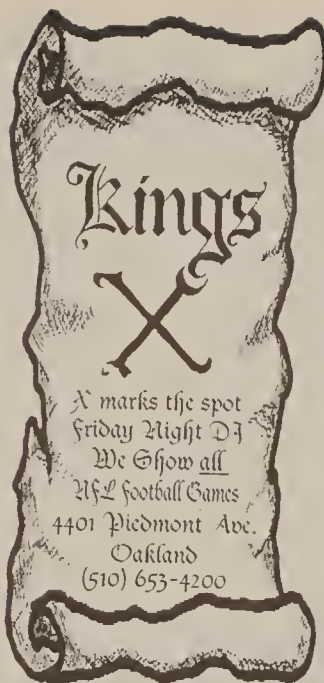 Kings
X
X marks the spot
Friday Night DJ
We Show all
NFL Football Games
4401 Piedmont Ave.
Oakland
(510) 653-4200